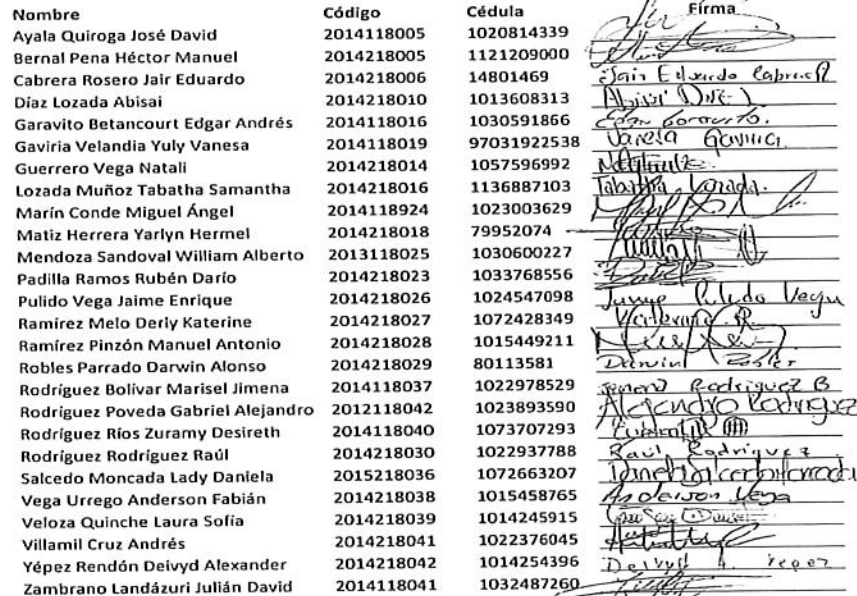 Nombre Código Cédula Firma
Ayala Quiroga José David 2014118005 1020814339
Bernal Pena Héctor Manuel 2014218005 1121209000
Cabrera Rosero Jair Eduardo 2014218006 14801469 Jair Eduardo Cabrera R
Díaz Lozada Abisai 2014218010 1013608313 Abisai Díaz
Garavito Betancourt Edgar Andrés 2014118016 1030591866 Edgar Garavito.
Gaviria Velandia Yuly Vanesa 2014118019 97031922538 Vanesa Gaviria
Guerrero Vega Natali 2014218014 1057596992
Lozada Muñoz Tabatha Samantha 2014218016 1136887103 Tabatha Lozada.
Marín Conde Miguel Ángel 2014118924 1023003629
Matiz Herrera Yarlyn Hermel 2014218018 79952074
Mendoza Sandoval William Alberto 2013118025 1030600227
Padilla Ramos Rubén Darío 2014218023 1033768556
Pulido Vega Jaime Enrique 2014218026 1024547098 Jaime Pulido Vega
Ramírez Melo Derly Katerine 2014218027 1072428349
Ramírez Pinzón Manuel Antonio 2014218028 1015449211
Robles Parrado Darwin Alonso 2014218029 80113581 Darwin Robles
Rodríguez Bolívar Marisel Jimena 2014118037 1022978529 Jimena Rodriguez B
Rodríguez Poveda Gabriel Alejandro 2012118042 1023893590 Alejandro Rodriguez
Rodríguez Ríos Zuramy Desireth 2014118040 1073707293
Rodríguez Rodríguez Raúl 2014218030 1022937788 Raul Rodriguez
Salcedo Moncada Lady Daniela 2015218036 1072663207
Vega Urrego Anderson Fabián 2014218038 1015458765 Anderson Vega
Veloza Quinche Laura Sofía 2014218039 1014245915
Villamil Cruz Andrés 2014218041 1022376045
Yépez Rendón Deivyd Alexander 2014218042 1014254396 Deivyd A. Yepez
Zambrano Landázuri Julián David 2014118041 1032487260